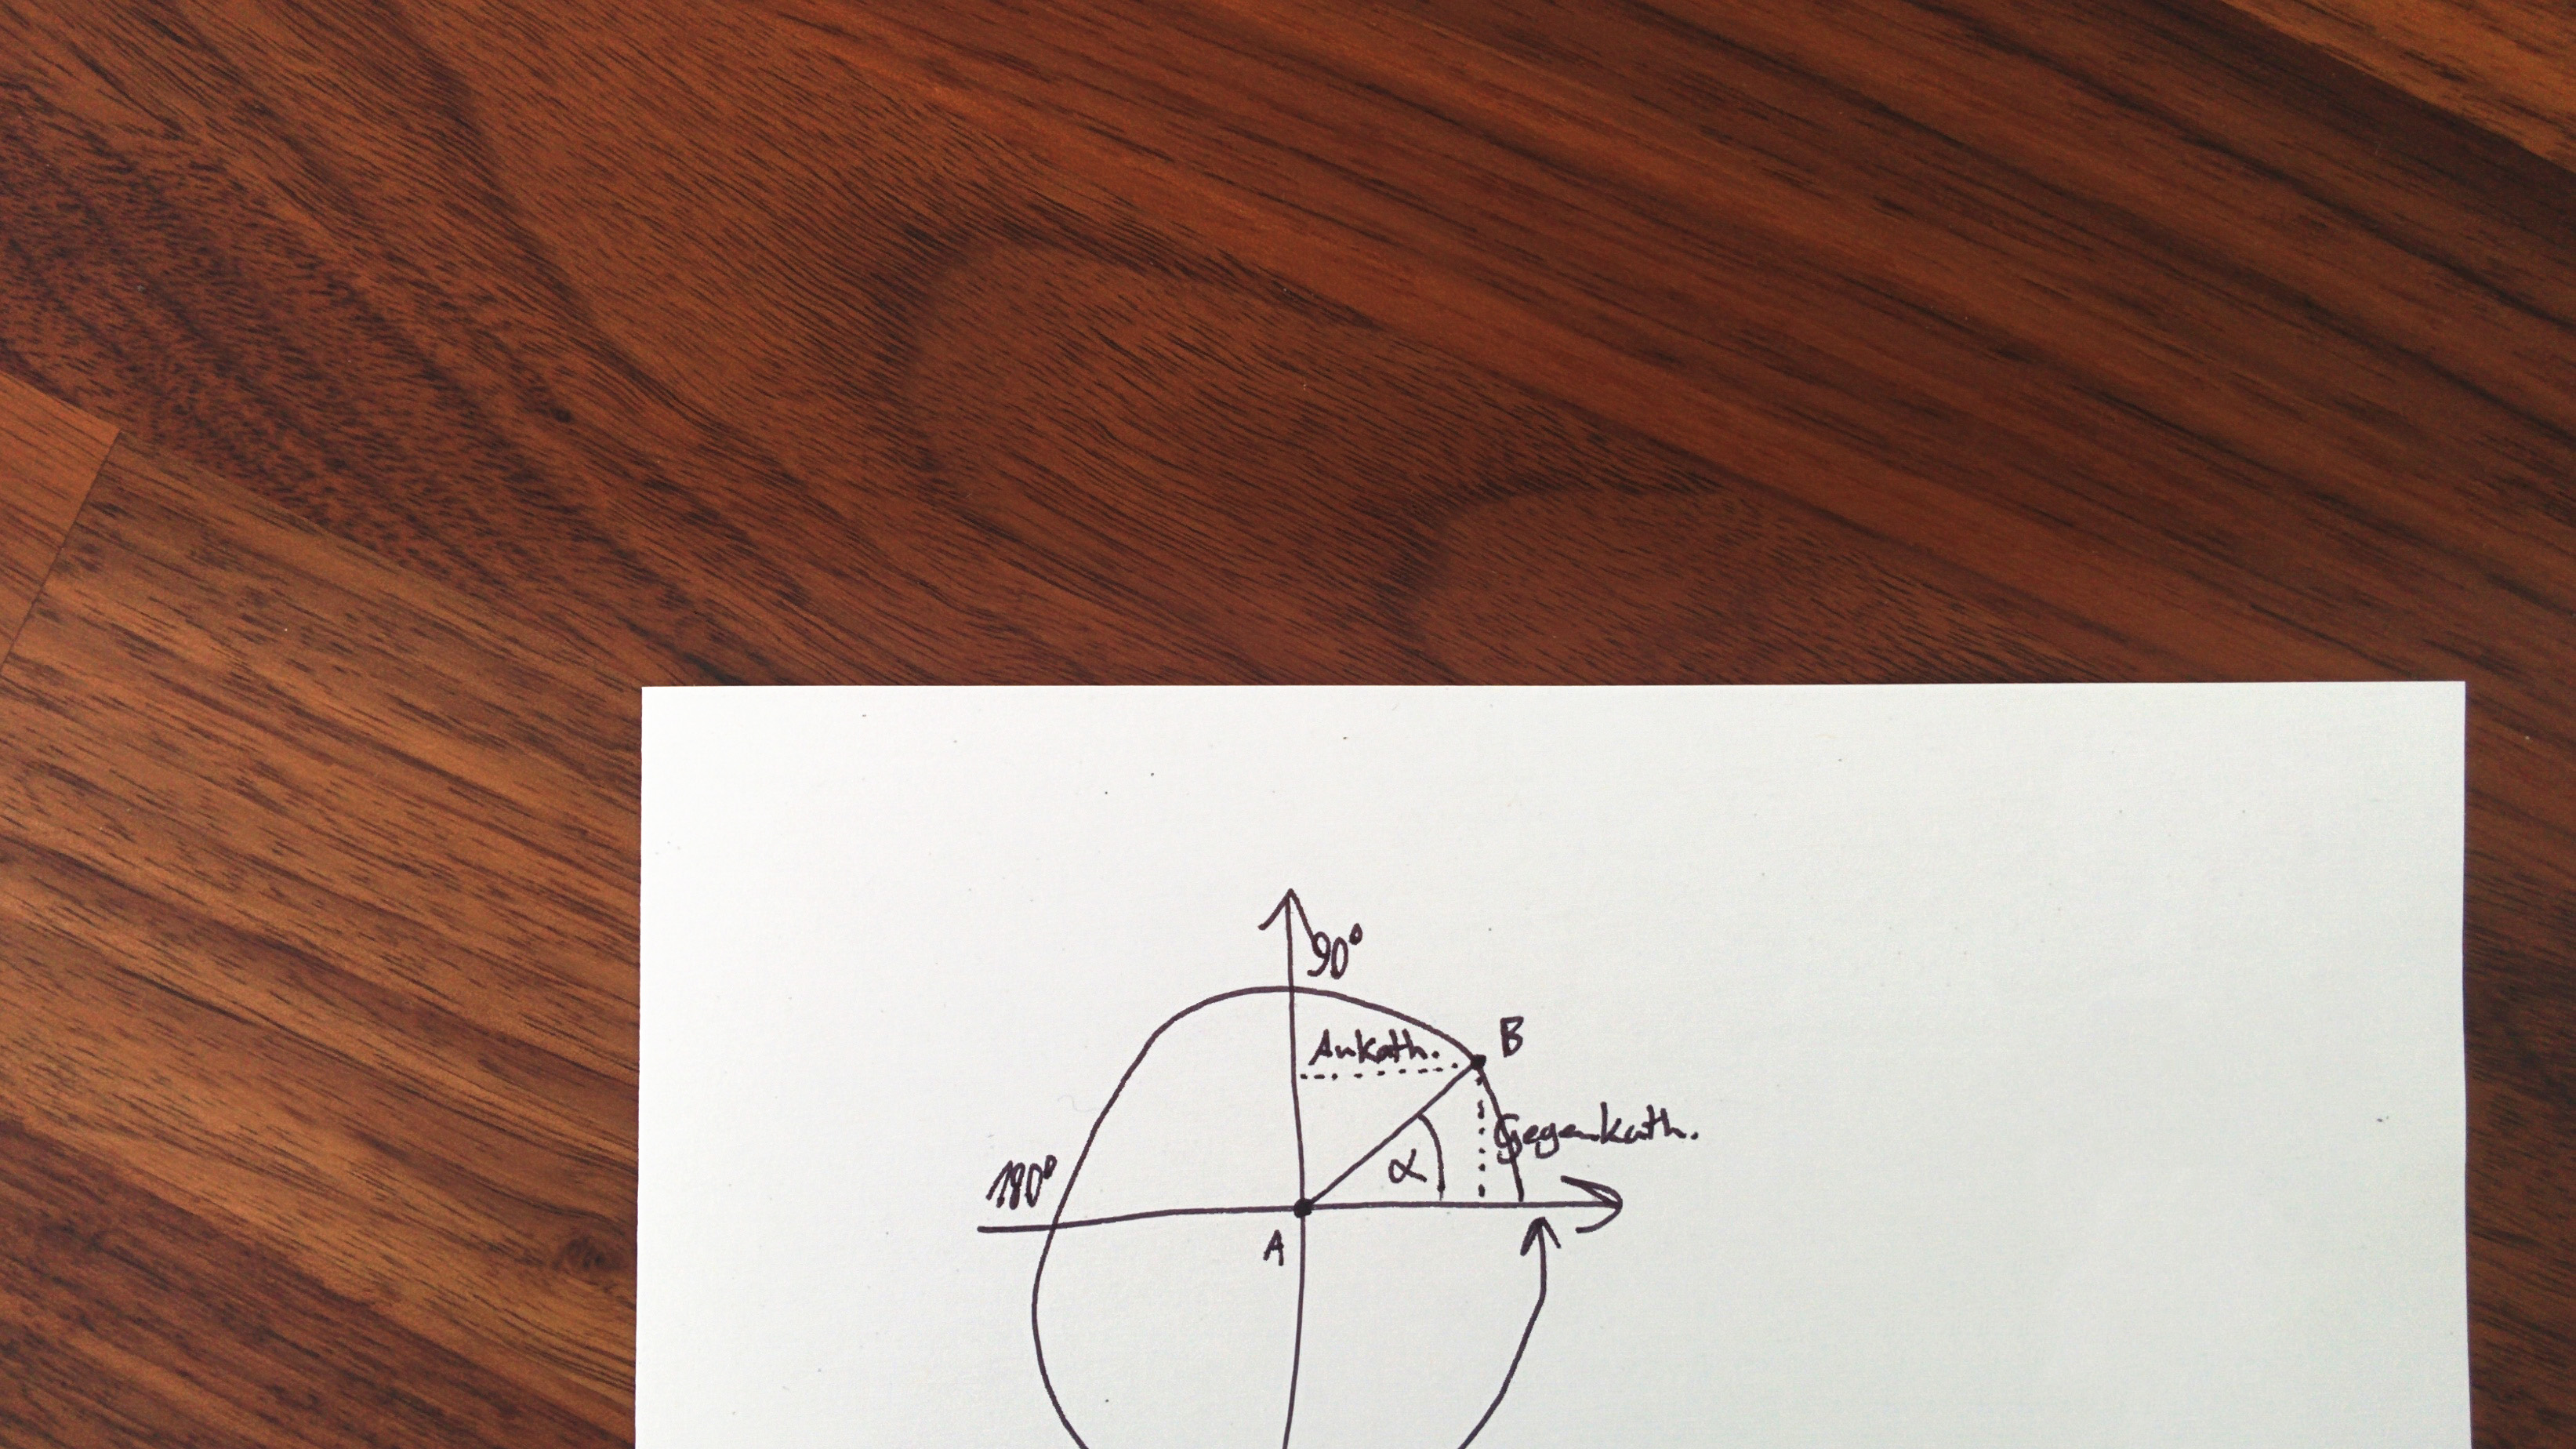 90°
Ankath.
B
Gegenkath.
α
180°
A